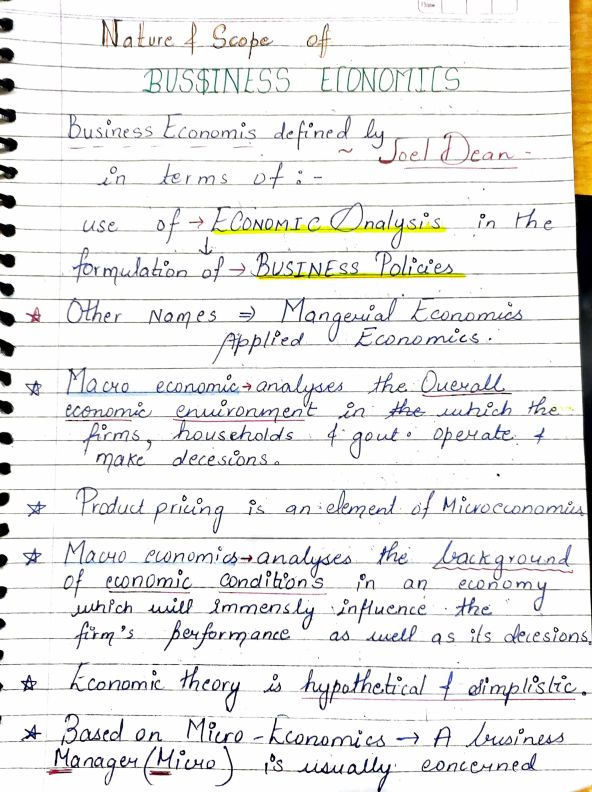 Nature & Scope of
BUS$INESS ECONOMICS
Business Economis defined by
~ Joel Dean -
in terms of : -
use of → ECONOMIC Analysis in the
↓
formulation of → BUSINESS Policies
☆ Other Names ⇒ Mangerial Economics
Applied Economics.
☆ Macro economic → analyses the Overall
economic environment in the which the
firms, households & govt. operate &
make decesions.
☆ Product pricing is an element of Microeconomics
☆ Macro economics → analyses the background
of economic conditions in an economy
which will immensly influence the
firm's performance as well as its decesions.
☆ Economic theory is hypothetical & simplistic.
☆ Based on Micro-Economics → A business
Manager (Micro) is usually concerned